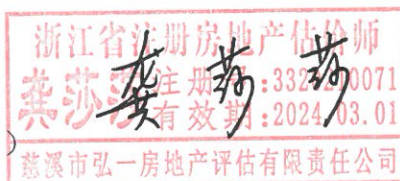 浙江省注册房地产估价师
龚莎莎
注册:332 0071
有效期:2024.03.01
龚莎莎
慈溪市弘一房地产评估有限责任公司